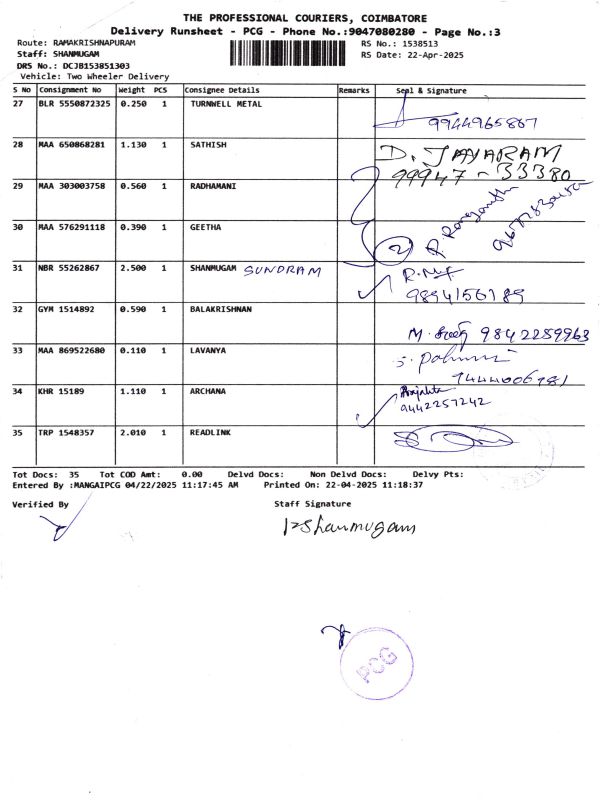 THE PROFESSIONAL COURIERS, COIMBATORE
Delivery Runsheet - PCG - Phone No.:9047080280 - Page No.:3
Route: RAMAKRISHNAPURAM
RS No.: 1538513
Staff: SHANMUGAM
RS Date: 22-Apr-2025
DRS No.: DCJB153851303
Vehicle: Two Wheeler Delivery
S No Consignment No Weight PCS Consignee Details Remarks Seal & Signature
27 BLR 5550872325 0.250 1 TURNWELL METAL
9944965867
28 MAA 650868281 1.130 1 SATHISH D. JAYARAM
99947-33380
29 MAA 303003758 0.560 1 RADHAMANI
30 MAA 576291118 0.390 1 GEETHA
31 NBR 55262867 2.500 1 SHANMUGAM SUNDRAM
9894156189
32 GYM 1514892 0.590 1 BALAKRISHNAN
9842259963
33 MAA 869522680 0.110 1 LAVANYA
34 KHR 15189 1.110 1 ARCHANA
9442257242
35 TRP 1548357 2.010 1 READLINK
Tot Docs: 35 Tot COD Amt: 0.00 Delvd Docs: Non Delvd Docs: Delvy Pts:
Entered By :MANGAIPCG 04/22/2025 11:17:45 AM Printed On: 22-04-2025 11:18:37
Verified By Staff Signature
Shanmugam
PCG